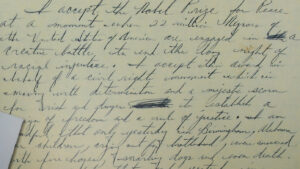 I accept the Nobel Prize for Peace
at a moment when 22 million Negroes of
the United States of America are engaged in a
creative battle to end the long night of
racial injustice. I accept this award in
behalf of a civil rights movement which is
moving with determination and a majestic scorn
for risk and danger to establish a
reign of freedom and a rule of justice. I am
that only yesterday in Birmingham, Alabama
our children, crying out for brotherhood, were answered
with fire hoses, snarling dogs and even death.